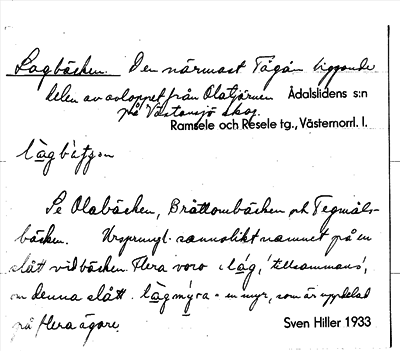 Lagbäcken. Den närmast Tågån liggande
delen av avloppet från Olatjärnen Ådalslidens s:n
på Västansjö skog.
Ramsele och Resele tg., Västernorrl. l.
Se Olabäcken, Bråttombäcken och Tegmåls-
bäcken. Ursprungl. sannolikt namnet på en
slått vid bäcken. Flera voro i låg, 'tillsammans',
om denna slått. en myr, som är uppdelad
på flera ägare.
Sven Hiller 1933